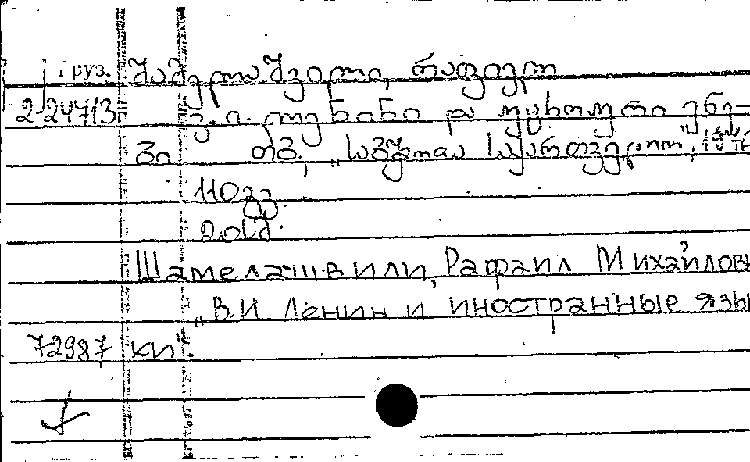 Груз. შამელაშვილი, რაფიელ
2-24713 ვ. ი. ლენინი და უცხოური ენე-
ბი თბ., „საბჭოთა საქართველო",
110 გვ.
Шамелашвили, Рафаил Михайлови
„В.И Ленин и иностранные язы
72987 кп